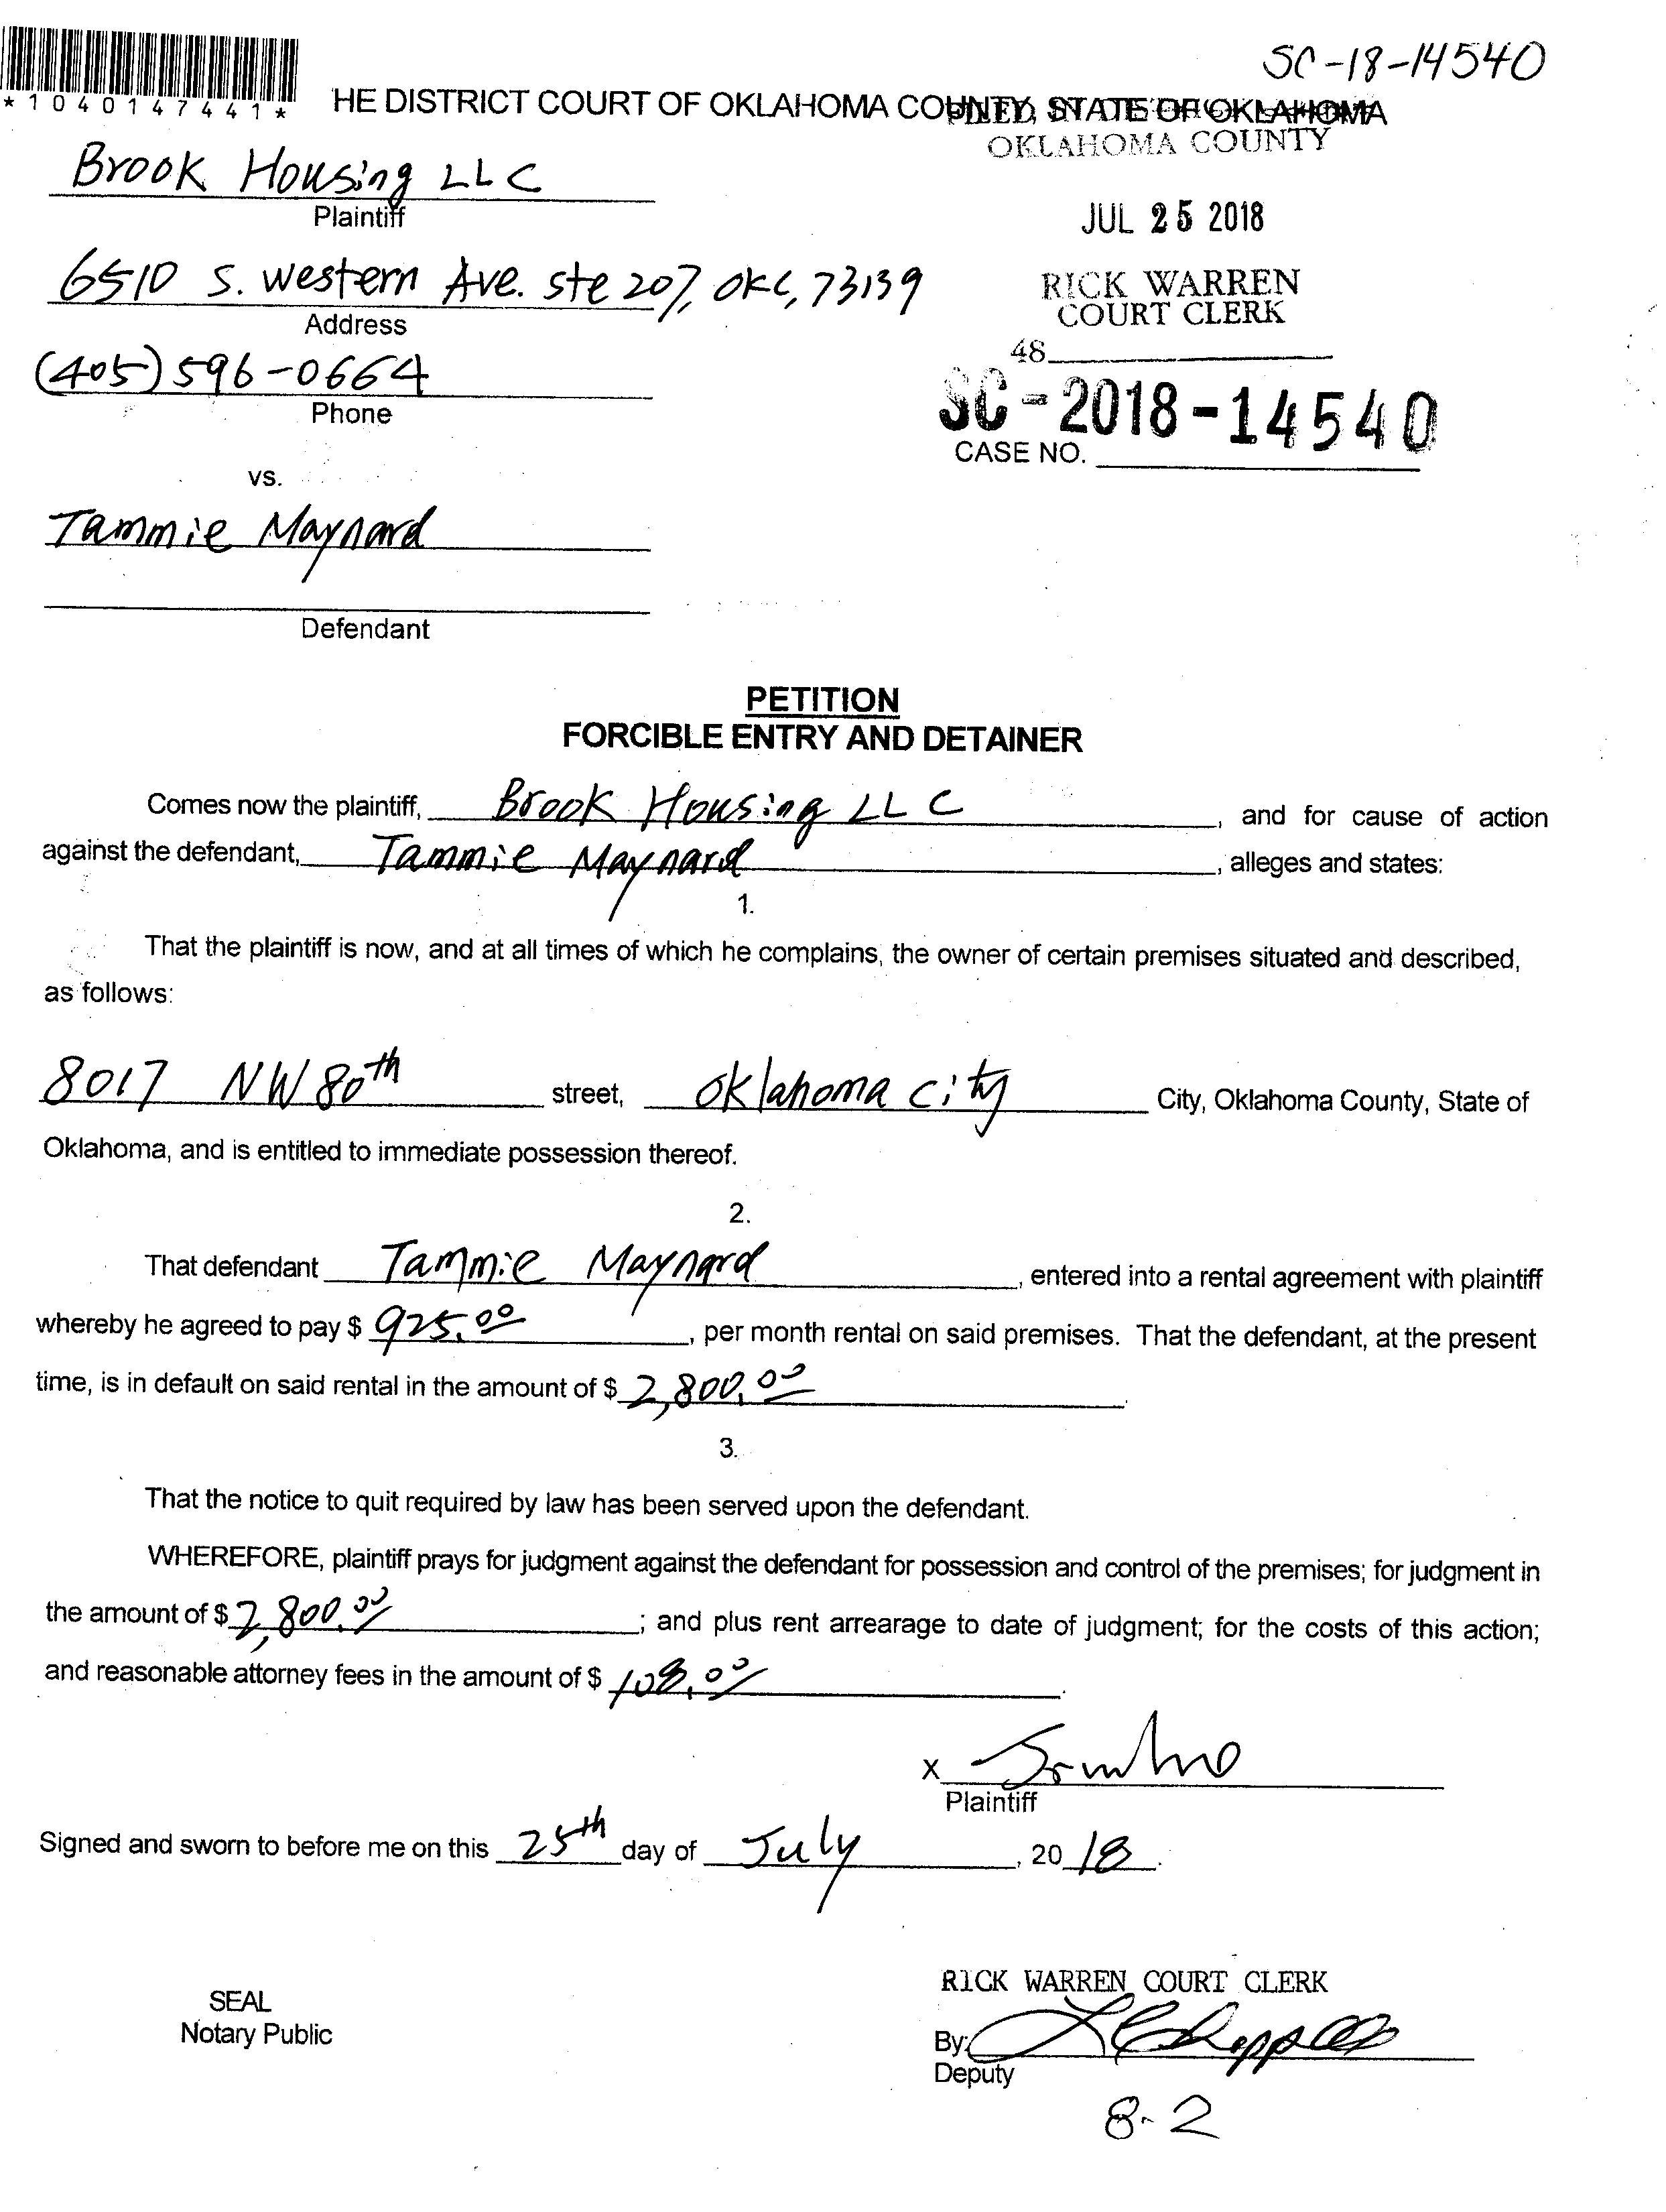 SC-18-14540
*1040147441*
HE DISTRICT COURT OF OKLAHOMA COUNTY, STATE OF OKLAHOMA
OKLAHOMA COUNTY
Brook Housing LLC
Plaintiff
JUL 25 2018
6510 S. Western Ave. Ste 207, OKC, 73139
Address
RICK WARREN
COURT CLERK
(405) 596-0664
Phone
48
SC-2018-14540
CASE NO.
vs.
Tammie Maynard
Defendant
PETITION
FORCIBLE ENTRY AND DETAINER
Comes now the plaintiff, Brook Housing LLC, and for cause of action
against the defendant, Tammie Maynard, alleges and states:
1.
That the plaintiff is now, and at all times of which he complains, the owner of certain premises situated and described,
as follows:
8017 NW 80th street, Oklahoma city City, Oklahoma County, State of
Oklahoma, and is entitled to immediate possession thereof.
2.
That defendant Tammie Maynard, entered into a rental agreement with plaintiff
whereby he agreed to pay $ 925.00, per month rental on said premises. That the defendant, at the present
time, is in default on said rental in the amount of $ 2,800.00.
3.
That the notice to quit required by law has been served upon the defendant.
WHEREFORE, plaintiff prays for judgment against the defendant for possession and control of the premises; for judgment in
the amount of $ 2,800.00; and plus rent arrearage to date of judgment; for the costs of this action;
and reasonable attorney fees in the amount of $ 108.00.
X
Plaintiff
Signed and sworn to before me on this 25th day of July, 2018.
RICK WARREN COURT CLERK
SEAL
Notary Public
By:
Deputy
8-2